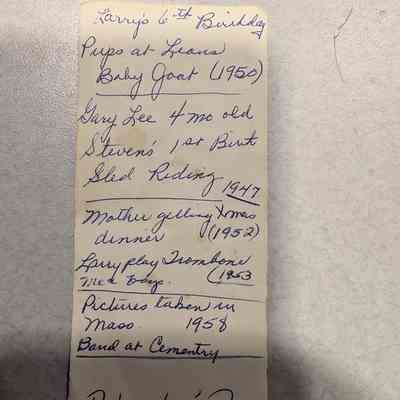 Larry's 6th Birthday
Pups at Leons
Baby Goat (1950)
Gary Lee 4 mo old
Steven's 1st Birth
Sled Riding
1947
Mother getting Xmas
dinner (1952)
Larry play Trombone
(1953
Pictures taken in
Mass. 1958
Band at Cementry